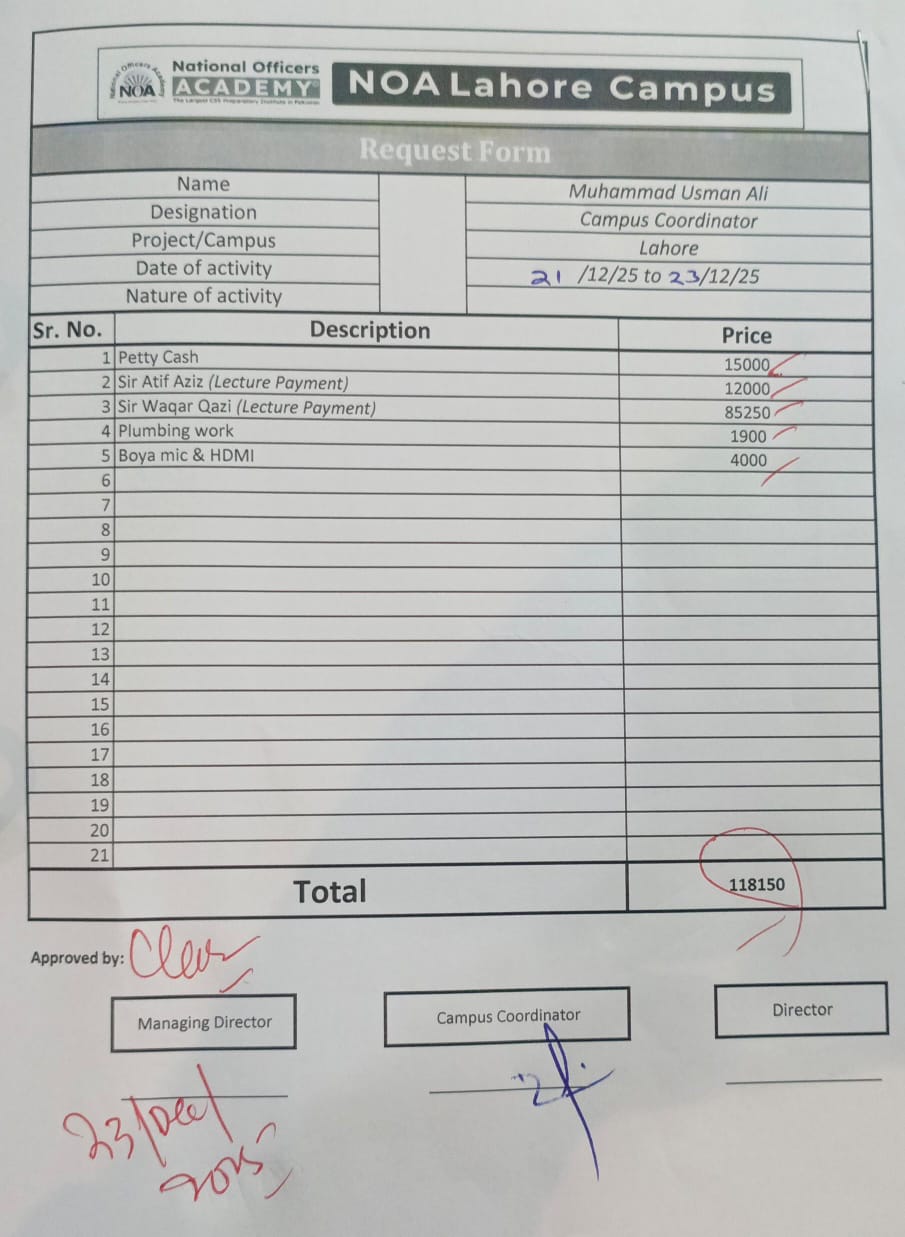 National Officers
ACADEMY
The Largest CSS Preparatory Institute in Pakistan
NOA
NOA Lahore Campus
Request Form
Name Muhammad Usman Ali
Designation Campus Coordinator
Project/Campus Lahore
Date of activity 21 /12/25 to 23/12/25
Nature of activity
Sr. No. Description Price
1 Petty Cash 15000
2 Sir Atif Aziz (Lecture Payment) 12000
3 Sir Waqar Qazi (Lecture Payment) 85250
4 Plumbing work 1900
5 Boya mic & HDMI 4000
6
7
8
9
10
11
12
13
14
15
16
17
18
19
20
21
Total 118150
Approved by: Clear
Managing Director Campus Coordinator Director
23/Dec/
2025